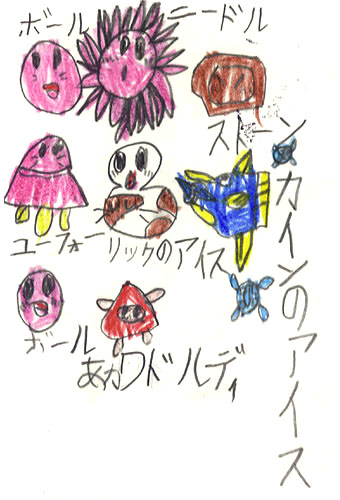 ボール
ニードル
ストーン
ユーフォー
リックのアイス
カインのアイス
ボール
あかワドルディ